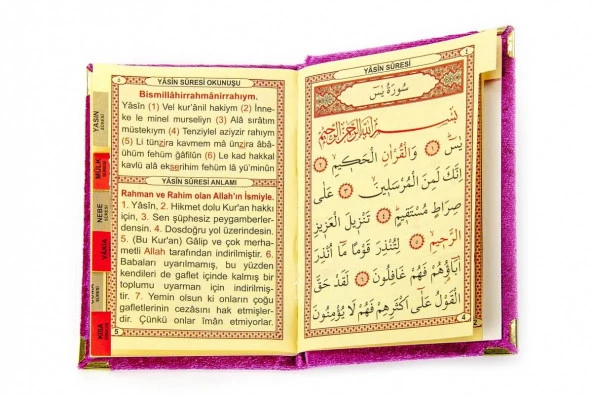 YÂSÎN SÛRESİ OKUNUŞU
Bismillâhirrahmânirrahıym.
Yâsîn (1) Vel kur'ânil hakiym (2) İnne-
ke le minel murseliyn (3) Alâ sırâtım
müstekıym (4) Tenziylel aziyzir rahıym
(5) Li tünzira kavmem mâ ünzira âbâ-
ühüm fehüm ğâfilûn (6) Le kad hakkal
kavlü alâ ekserihim fehüm lâ yü'minûn
YÂSÎN SÛRESİ ANLAMI
Rahman ve Rahim olan Allah'ın İsmiyle.
1. Yâsîn, 2. Hikmet dolu Kur'an hakkı
için, 3. Sen şüphesiz peygamberler-
densin. 4. Dosdoğru yol üzerindesin.
5. (Bu Kur'an) Gâlip ve çok merha-
metli Allah tarafından indirilmiştir. 6.
Babaları uyarılmamış, bu yüzden
kendileri de gaflet içinde kalmış bir
toplumu uyarman için indirilmiş-
tir. 7. Yemin olsun ki onların çoğu
gafletlerinin cezasını hak etmişler-
dir. Çünkü onlar îmân etmiyorlar.
5
YASİN
SÛRESİ
MÜLK
SÛRESİ
NEBE
SÛRESİ
VAKIA
KISA
YÂSÎN SÛRESİ
سُورَةُ يٰسۤ
بِسْمِ اللّٰهِ الرَّحْمٰنِ الرَّحِيمِ
يٰسۤ ﴿١﴾ وَالْقُرْاٰنِ الْحَكِيمِ ﴿٢﴾
اِنَّكَ لَمِنَ الْمُرْسَلِينَ ﴿٣﴾ عَلٰى
صِرَاطٍ مُسْتَقِيمٍ ﴿٤﴾ تَنْزِيلَ الْعَزِيزِ
الرَّحِيمِ ﴿٥﴾ لِتُنْذِرَ قَوْمًا مَا اُنْذِرَ
اٰبَاؤُهُمْ فَهُمْ غَافِلُونَ ﴿٦﴾ لَقَدْ حَقَّ
الْقَوْلُ عَلٰى اَكْثَرِهِمْ فَهُمْ لَا يُؤْمِنُونَ
4